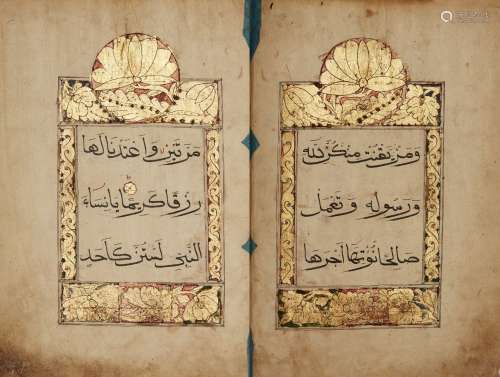 ومن يقنت منكن لله
ورسوله وتعمل
صالحا نوتها اجرها
مرتين واعتدنا لها
رزقا كريما يا نساء
النبي لستن كاحد